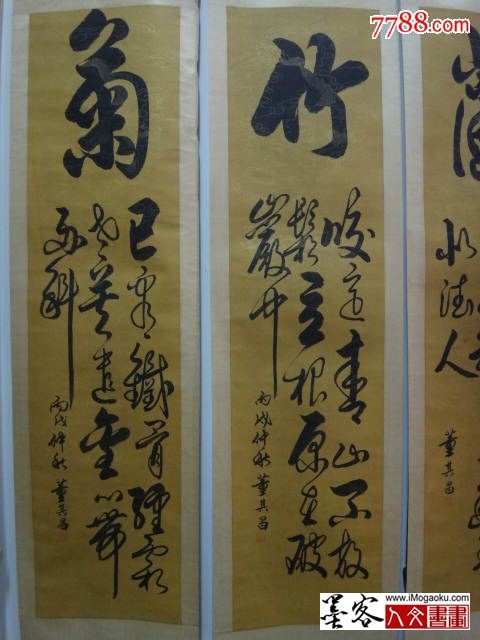 7788.com
董其昌
竹
咬定青山不放
鬆立根原在破
巖中
丙戌仲秋 董其昌
菊
已鐵骨經霜
老莫遣金心帶
雨斜
丙戌仲秋 董其昌
www.iMogaoku.com
墨客人文書畫